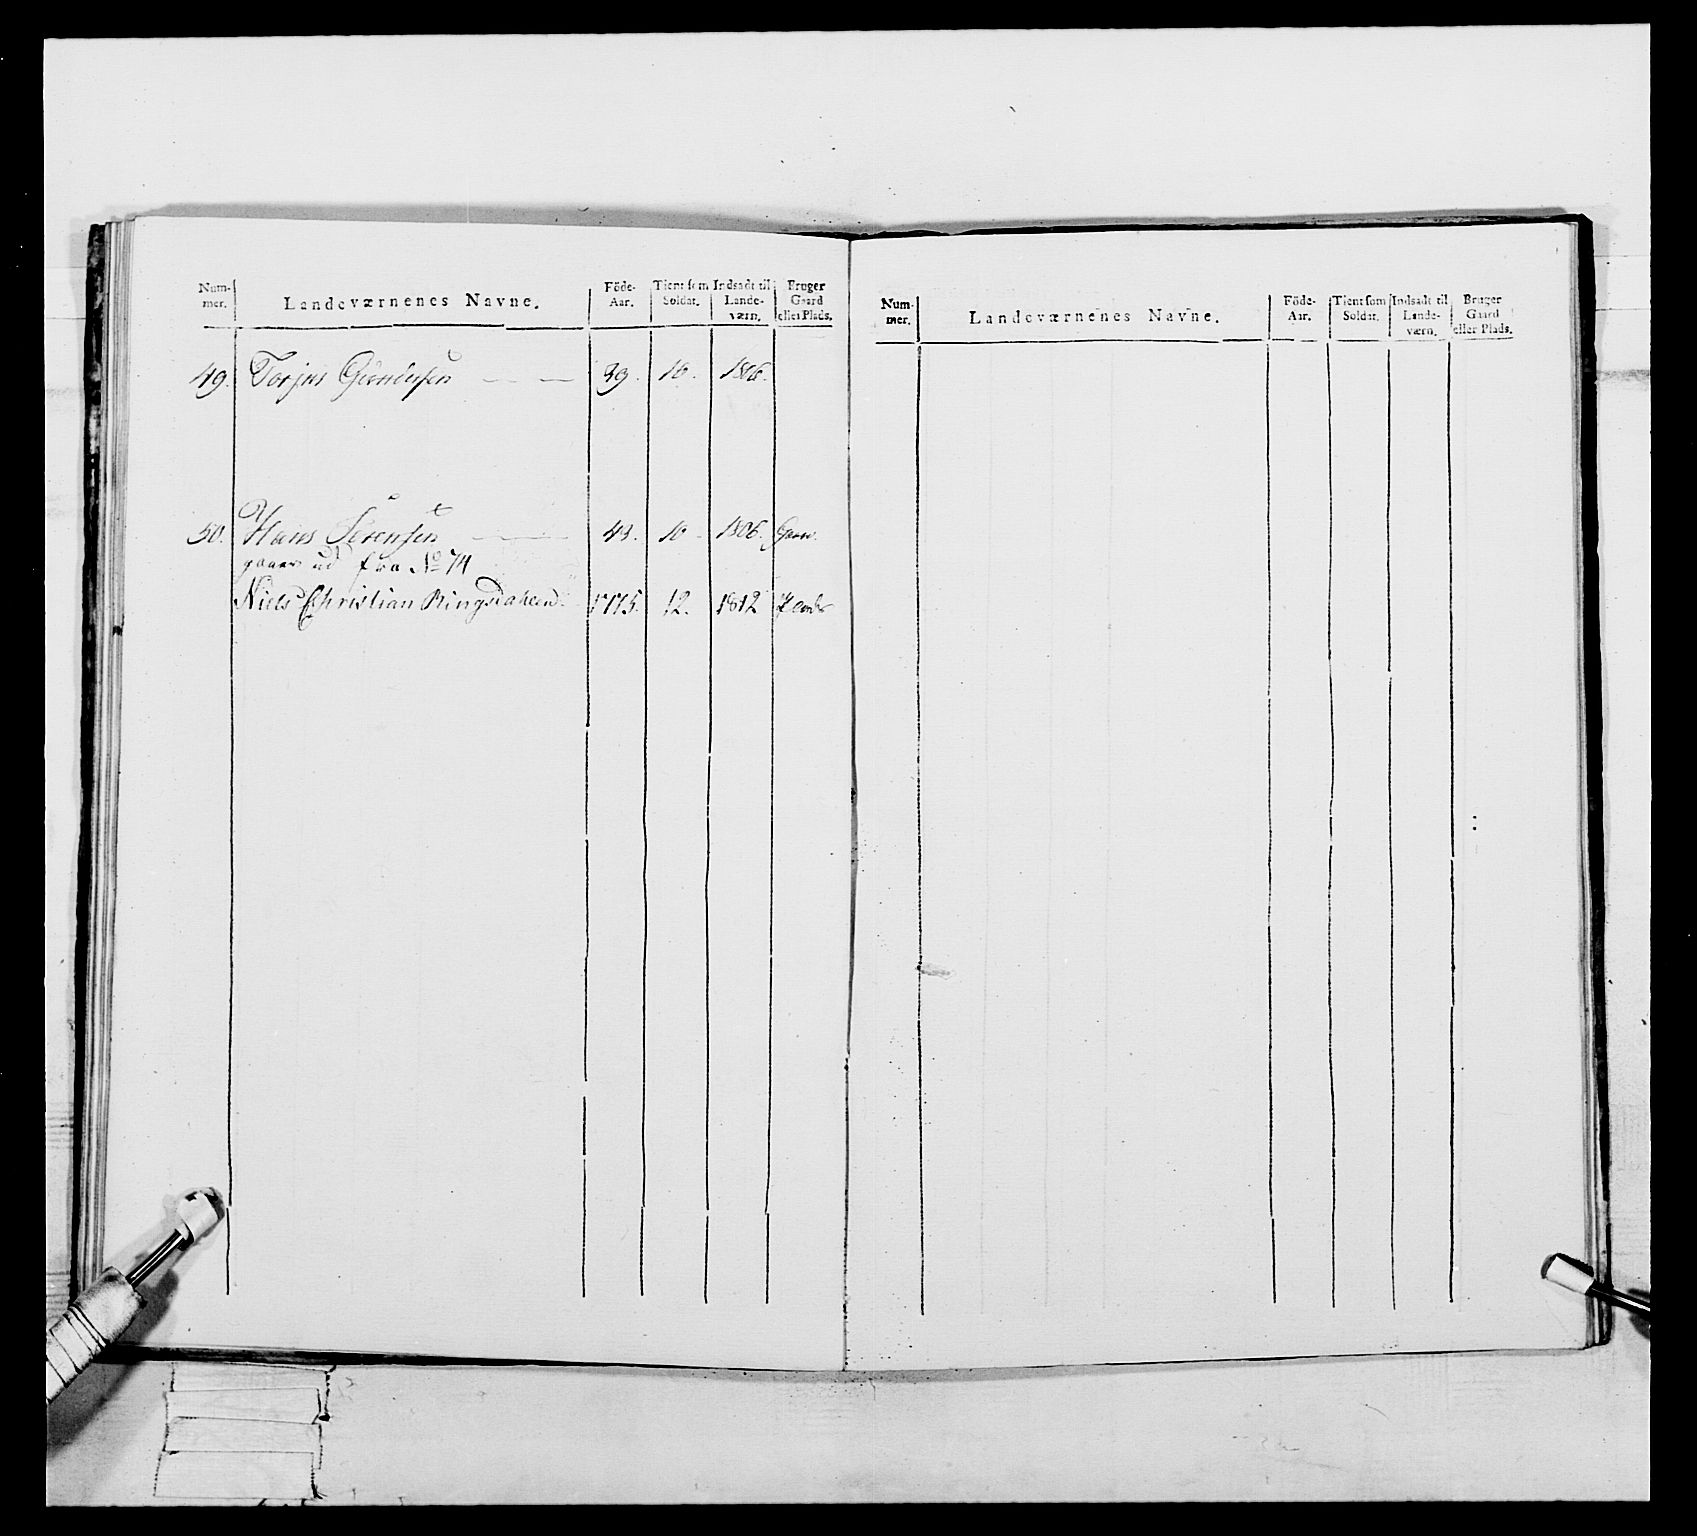 Num- mer. Landeværnenes Navne. Föde- Aar. Tient som Soldat. Indsadt til Lande- værn. Bruger Gaard eller Plads.
49. Torjus Gundersen — — 39. 10. 1806.
50. Hans Sörensen — 43. 10 1806.
gaaer ud fra No 74
Niels Christian Ringsdahlen 1775. 12. 1812
Num- mer. Landeværnenes Navne. Föde- Aar. Tient som Soldat. Indsadt til Lande- værn. Bruger Gaard eller Plads.